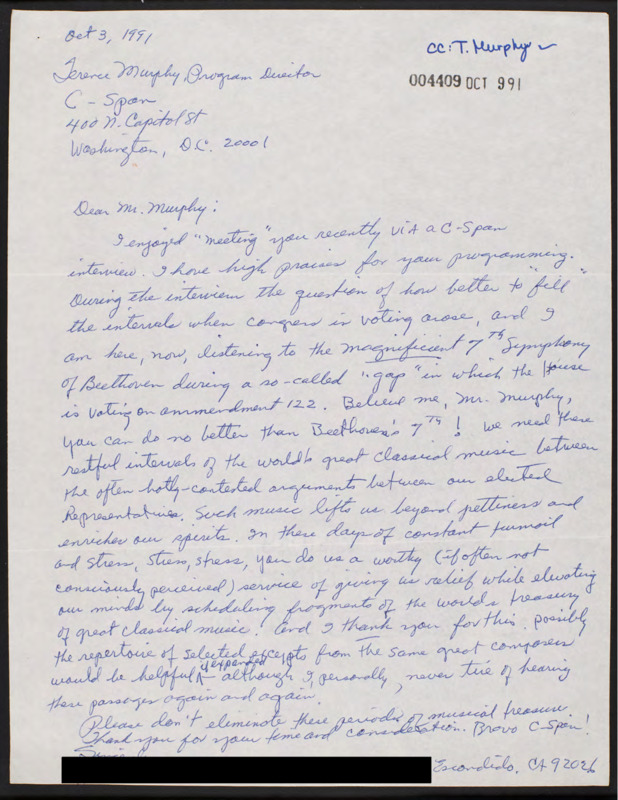 Oct 3, 1991
cc: T. Murphy ✓
004409 OCT 991
Terence Murphy, Program Director
C-Span
400 N. Capitol St
Washington, D.C. 20001
Dear Mr. Murphy:
I enjoyed "meeting" you recently via a C-Span
interview. I have high praises for your programming.
During the interview the question of how better to "fill"
the intervals when congress is voting arose, and I
am here, now, listening to the magnificent 7th Symphony
of Beethoven during a so-called "gap" in which the House
is voting on ammendment 122. Believe me, Mr. Murphy,
you can do no better than Beethoven's 7th! We need these
restful intervals of the world's great classical music between
the often hotly-contested arguments between our elected
Representatives. Such music lifts us beyond pettiness and
enriches our spirits. In these days of constant turmoil
and stress, stress, stress, you do us a worthy (if often not
consciously perceived) service of giving us relief while elevating
our minds by scheduling fragments of the world's treasury
of great classical music. And I thank you for this. Possibly
the repertoire of selected excepts from the same great composers
would be helpful if expanded although I, personally, never tire of hearing
these passages again and again.
Please don't eliminate these periods of musical treasure.
Thank you for your time and consideration. Bravo C-Span!
Escondido, CA 92026